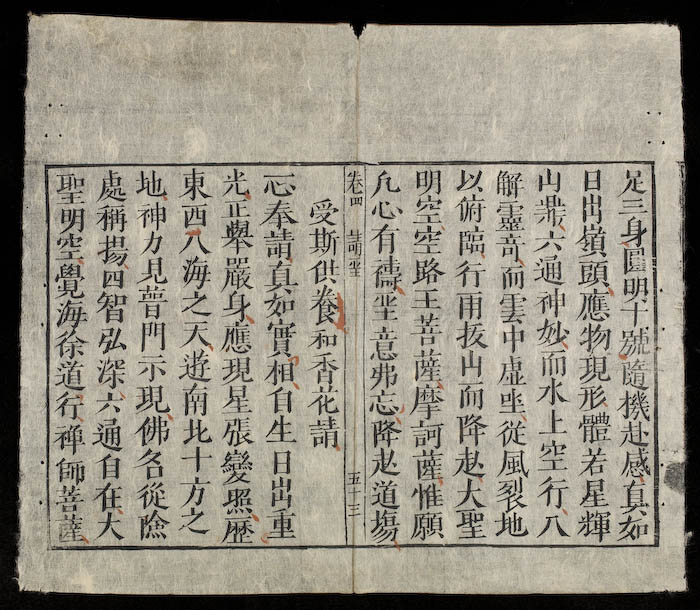 足三身圓明十號隨機赴感真如
日出嶺頭應物現形體若星輝
山鼎六通神妙而水上空行八
解靈奇而雲中虛坐從風裂地
以俯臨行雨拔山而降赴大聖
明空空路王菩薩摩訶薩惟願
凡心有禱坐意弗忘降赴道場
卷四 請坐 五十三
受斯供養和香花請
心奉請真如實相自生日出重
光正舉嚴身應現星張變照歷
東西八海之天遊南北十方之
地神力見普門示現佛名從陰
處稱揚四智弘深六通自在大
聖明空覺海徐道行禅師菩薩